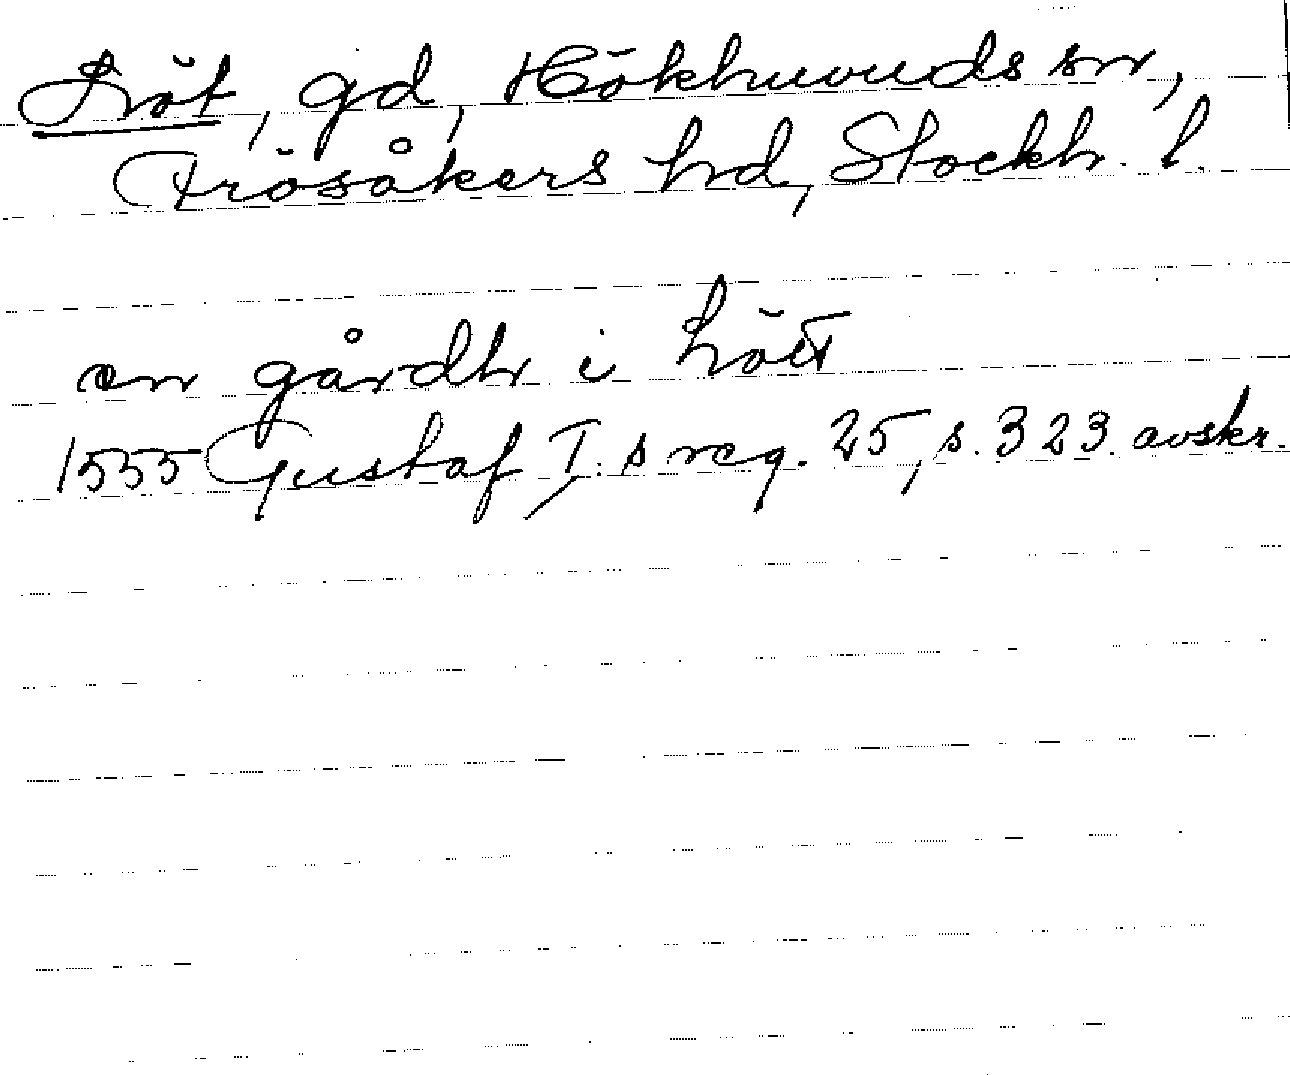 Löt, gd, Hökhuvuds sn,
Frösåkers hd, Stockh. l.
en gårdh i Lött
1555 Gustaf I:s reg. 25, s. 323. avskr.